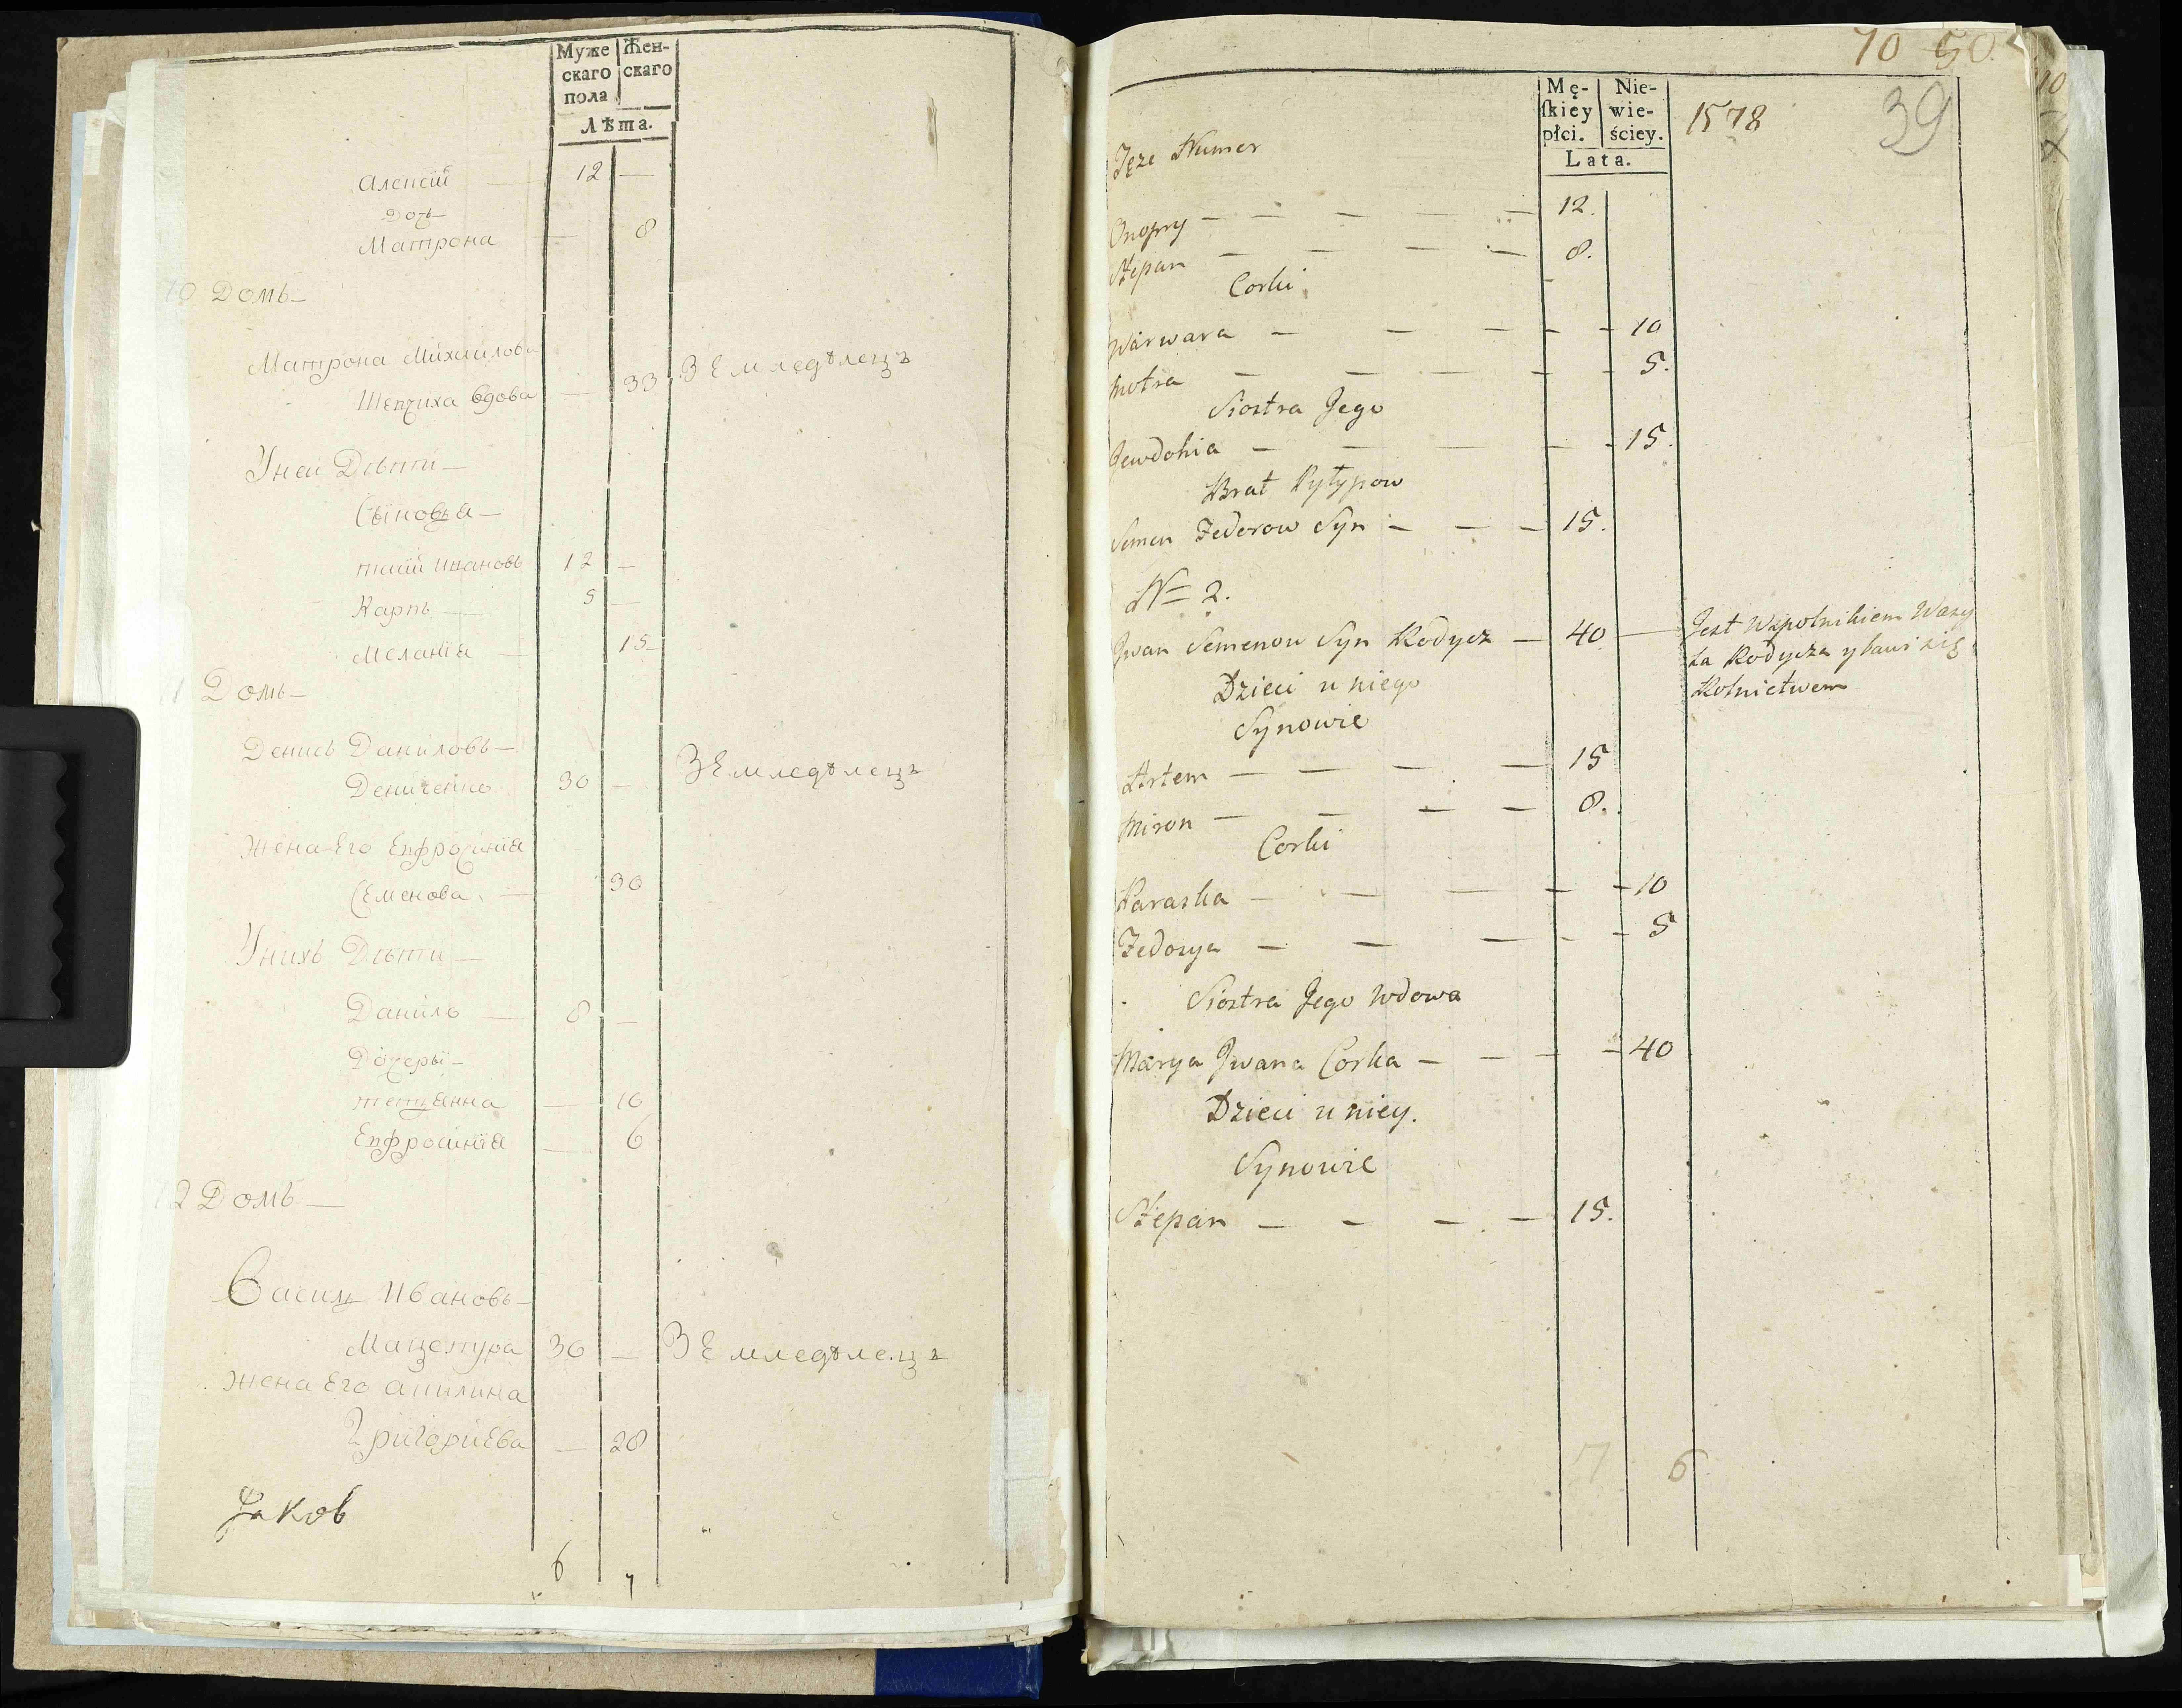 Муже Жен-
скаго скаго
пола
Лѣта.
Алексій — 12 —
Дочь
Матрона — 8
10 Домъ —
Матрона Михайлова
Шепчиха вдова — 33 Земледѣлецъ
Унеи Дѣти —
Сыновья —
тихий Ивановъ 12 —
Карпъ — 5 —
Меланія — 15 —
Домъ —
Денисъ Даниловъ —
Дениченко 30 — Земледѣлецъ
Жена Его Ефросинія
Семенова — 30
Унихъ Дѣти —
Данило — 8 —
Дочеры —
— 10
Ефросинія — 6
12 Домъ —
Василь Ивановъ —
Мацепура 30 — Земледѣлецъ
Жена Его акилина
Григориева — 28
Яковъ
6 7
70 50
39
1578
Mę- Nie-
ſkiey wie-
płci. ściey.
Lata.
Tęże Numer
Onopry — — — — — 12.
Stepan — — — — 8.
Corki
Warwara — — — — — 10
Motra — — — — — 5.
Siostra Jego
Jewdohia — — — — — 15.
Brat Pyłypow
Semen Fedorow Syn — — — 15.
N= 2.
Jwan Semenow Syn Kodycz — 40 — Jest Wspolnikiem Wasy
la Kodycza y bawi się
Rolnictwem
Dzieci u niego
Synowie
Artem — — — — 15
Miron — — — — 8.
Corki
Paraska — — — — — 10
Fedosya — — — — — 5
Siostra Jego Wdowa
Marya Jwana Corka — — — — 40
Dzieci u niey.
Synowie
Stepan — — — — 15.
7 6